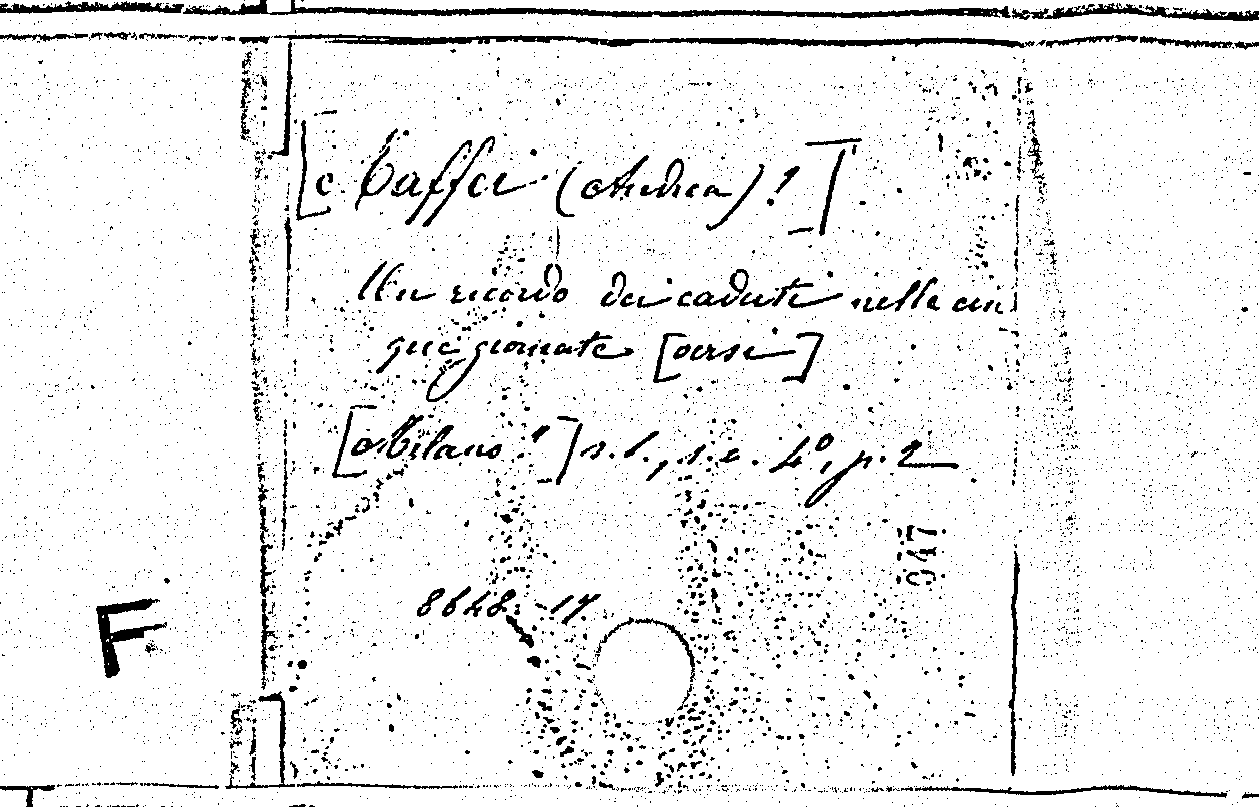 [Maffei (Andrea)?]
Un ricordo dei caduti nelle cin
que giornate [versi]
[Milano?] s.l., s.e. 4º, p. 2
947
8648. 17
F